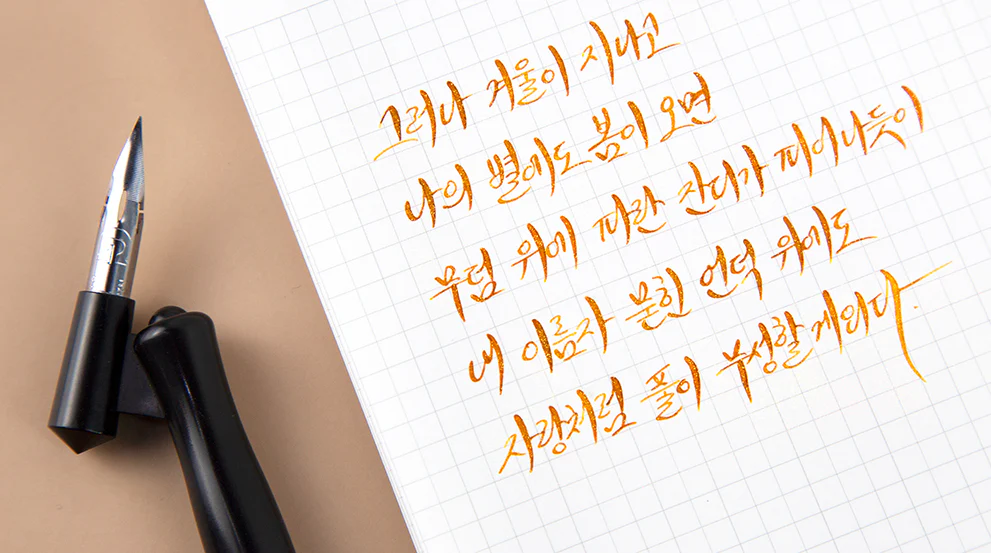 그러나 겨울이 지나고
나의 별에도 봄이 오면
무덤 위에 파란 잔디가 피어나듯이
내 이름자 묻힌 언덕 위에도
사랑처럼 풀이 무성할 게외다.